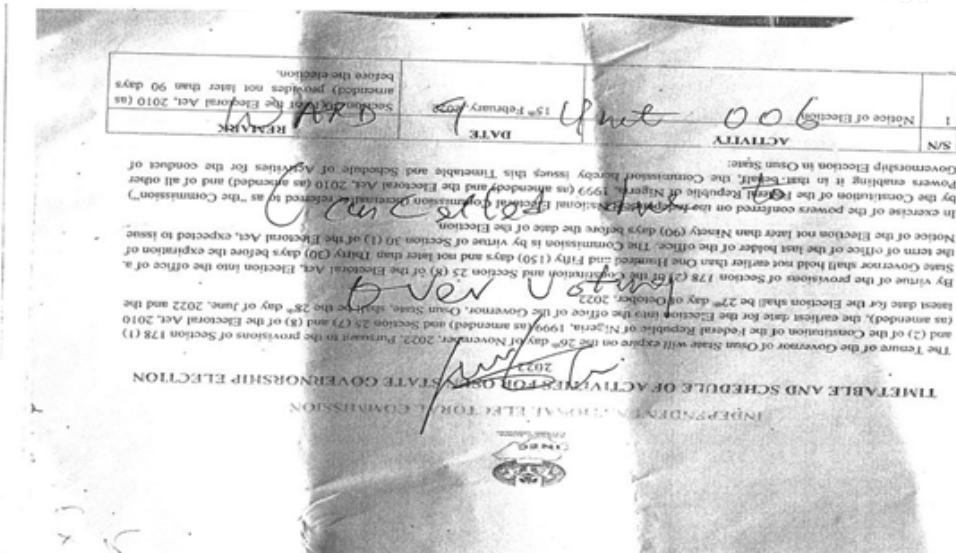 WARD 9 Unit 006
Cancelled due to
Over Voting
INEC
INDEPENDENT NATIONAL ELECTORAL COMMISSION
TIMETABLE AND SCHEDULE OF ACTIVITIES FOR OSUN STATE GOVERNORSHIP ELECTION
2022
The Tenure of the Governor of Osun State will expire on the 26th day of November, 2022. Pursuant to the provisions of Section 178 (1)
and (2) of the Constitution of the Federal Republic of Nigeria, 1999 (as amended) and Section 25 (7) and (8) of the Electoral Act, 2010
(as amended), the earliest date for the Election into the office of the Governor, Osun State, shall be the 28th day of June, 2022 and the
latest date for the Election shall be 27th day of October, 2022
By virtue of the provisions of Section 178 (2) of the Constitution and Section 25 (8) of the Electoral Act, Election into the office of a
State Governor shall hold not earlier than One Hundred and Fifty (150) days and not later than Thirty (30) days before the expiration of
the term of office of the last holder of the office. The Commission is by virtue of Section 30 (1) of the Electoral Act, expected to issue
Notice of the Election not later than Ninety (90) days before the date of the Election.
In exercise of the powers conferred on the Independent National Electoral Commission (hereinafter referred to as "the Commission")
by the Constitution of the Federal Republic of Nigeria, 1999 (as amended) and the Electoral Act, 2010 (as amended) and of all other
Powers enabling it in that behalf, the Commission hereby issues this Timetable and Schedule of Activities for the conduct of
Governorship Election in Osun State:
S/N ACTIVITY DATE REMARK
1 Notice of Election 15th February, 2022 Section 30(1) of the Electoral Act, 2010 (as
amended) provides not later than 90 days
before the election.